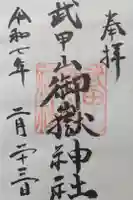 奉拝
武甲山御嶽神社
令和七年
二月二十三日